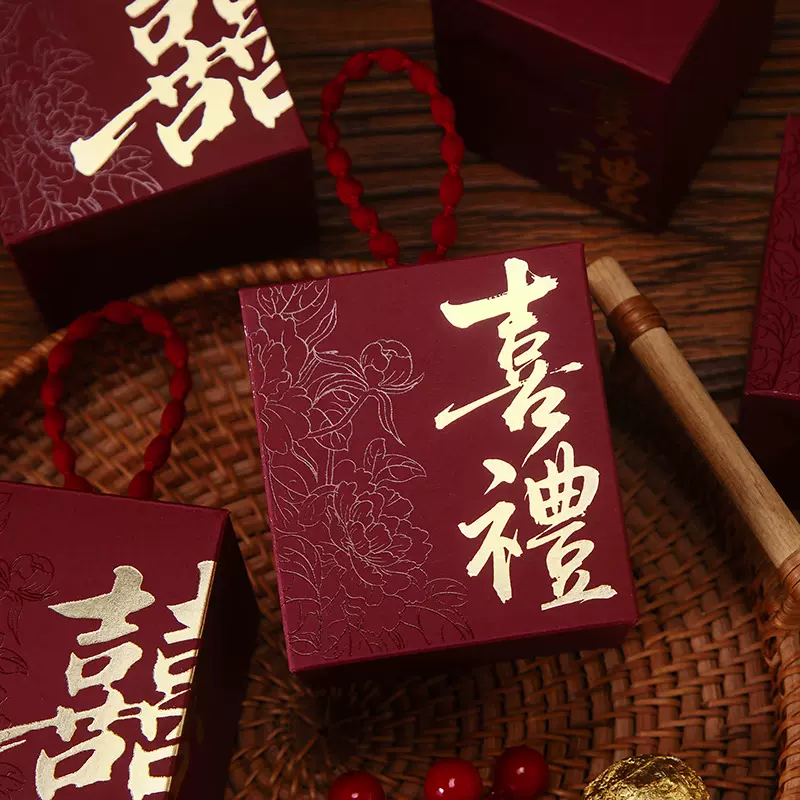 囍
喜禮
囍